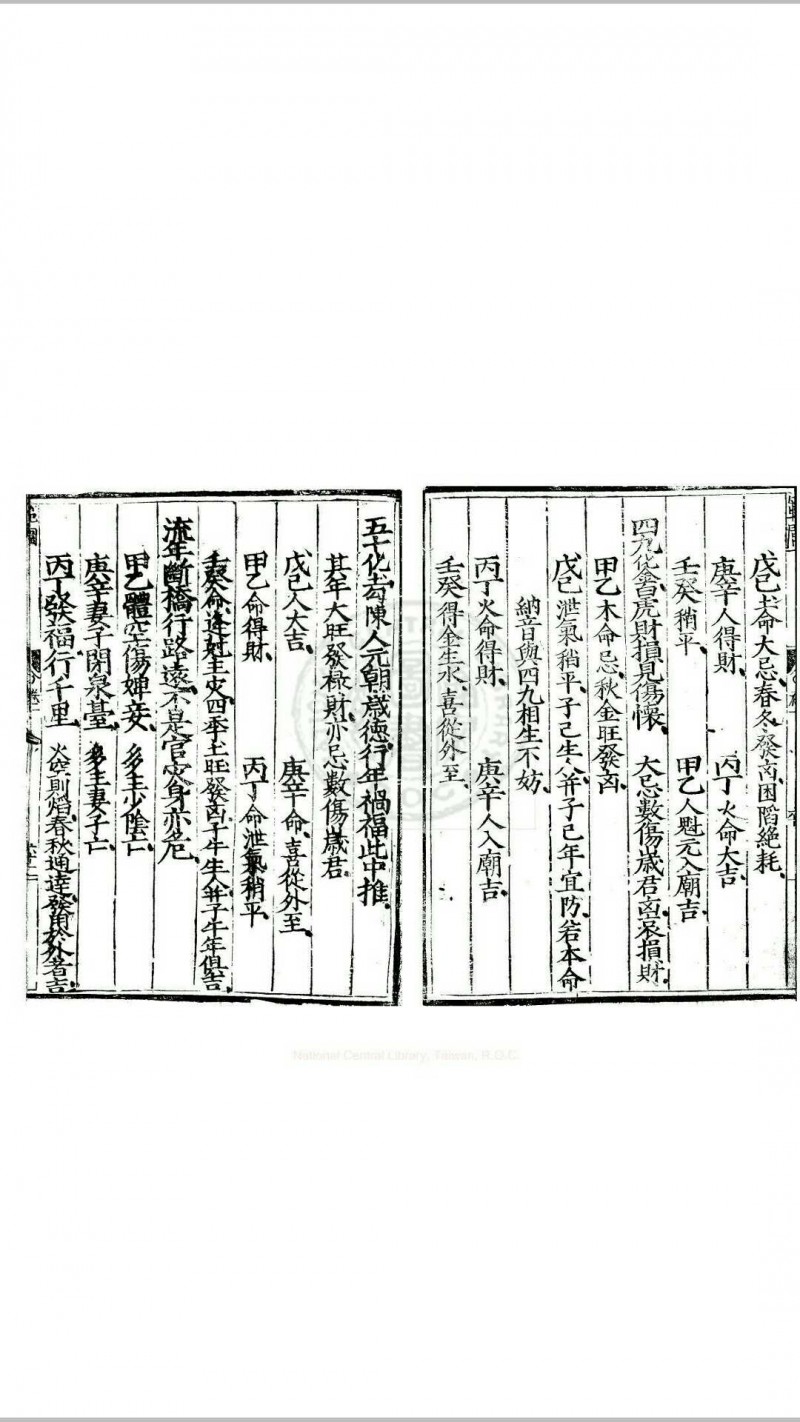 戊己土命大忌春冬發㐫困蹈絶耗
庚辛人得財 丙丁火命大吉
壬癸稍平 甲乙人魁元入廟吉
四九化金白虎財損見傷懷 大忌數傷歲君 損財
甲乙木命忌秋金旺發㐫
戊己泄氣稍平子己生人并子己年宜防若本命
納音與四九相生不妨
丙丁火命得財 庚辛人入廟吉
壬癸得金生水喜從外至
五十化去陳人元朝歲德行年禍福此中推
其年大旺發祿財亦忌數傷歲君
戊己人大吉 庚辛命喜從外至
甲乙命得財 丙丁命泄氣稍平
壬癸命逢尅主灾四季土旺發㐫子午生人并子午年俱吉
流年斷橋行路遠不是官灾身亦危
甲乙體空傷婢妾 多主少陰亡
庚辛妻子閉泉臺 多主妻子亡
丙丁發福行千里 火空則焰春秋通達發用於外者吉
National Central Library, Taiwan, R.O.C.